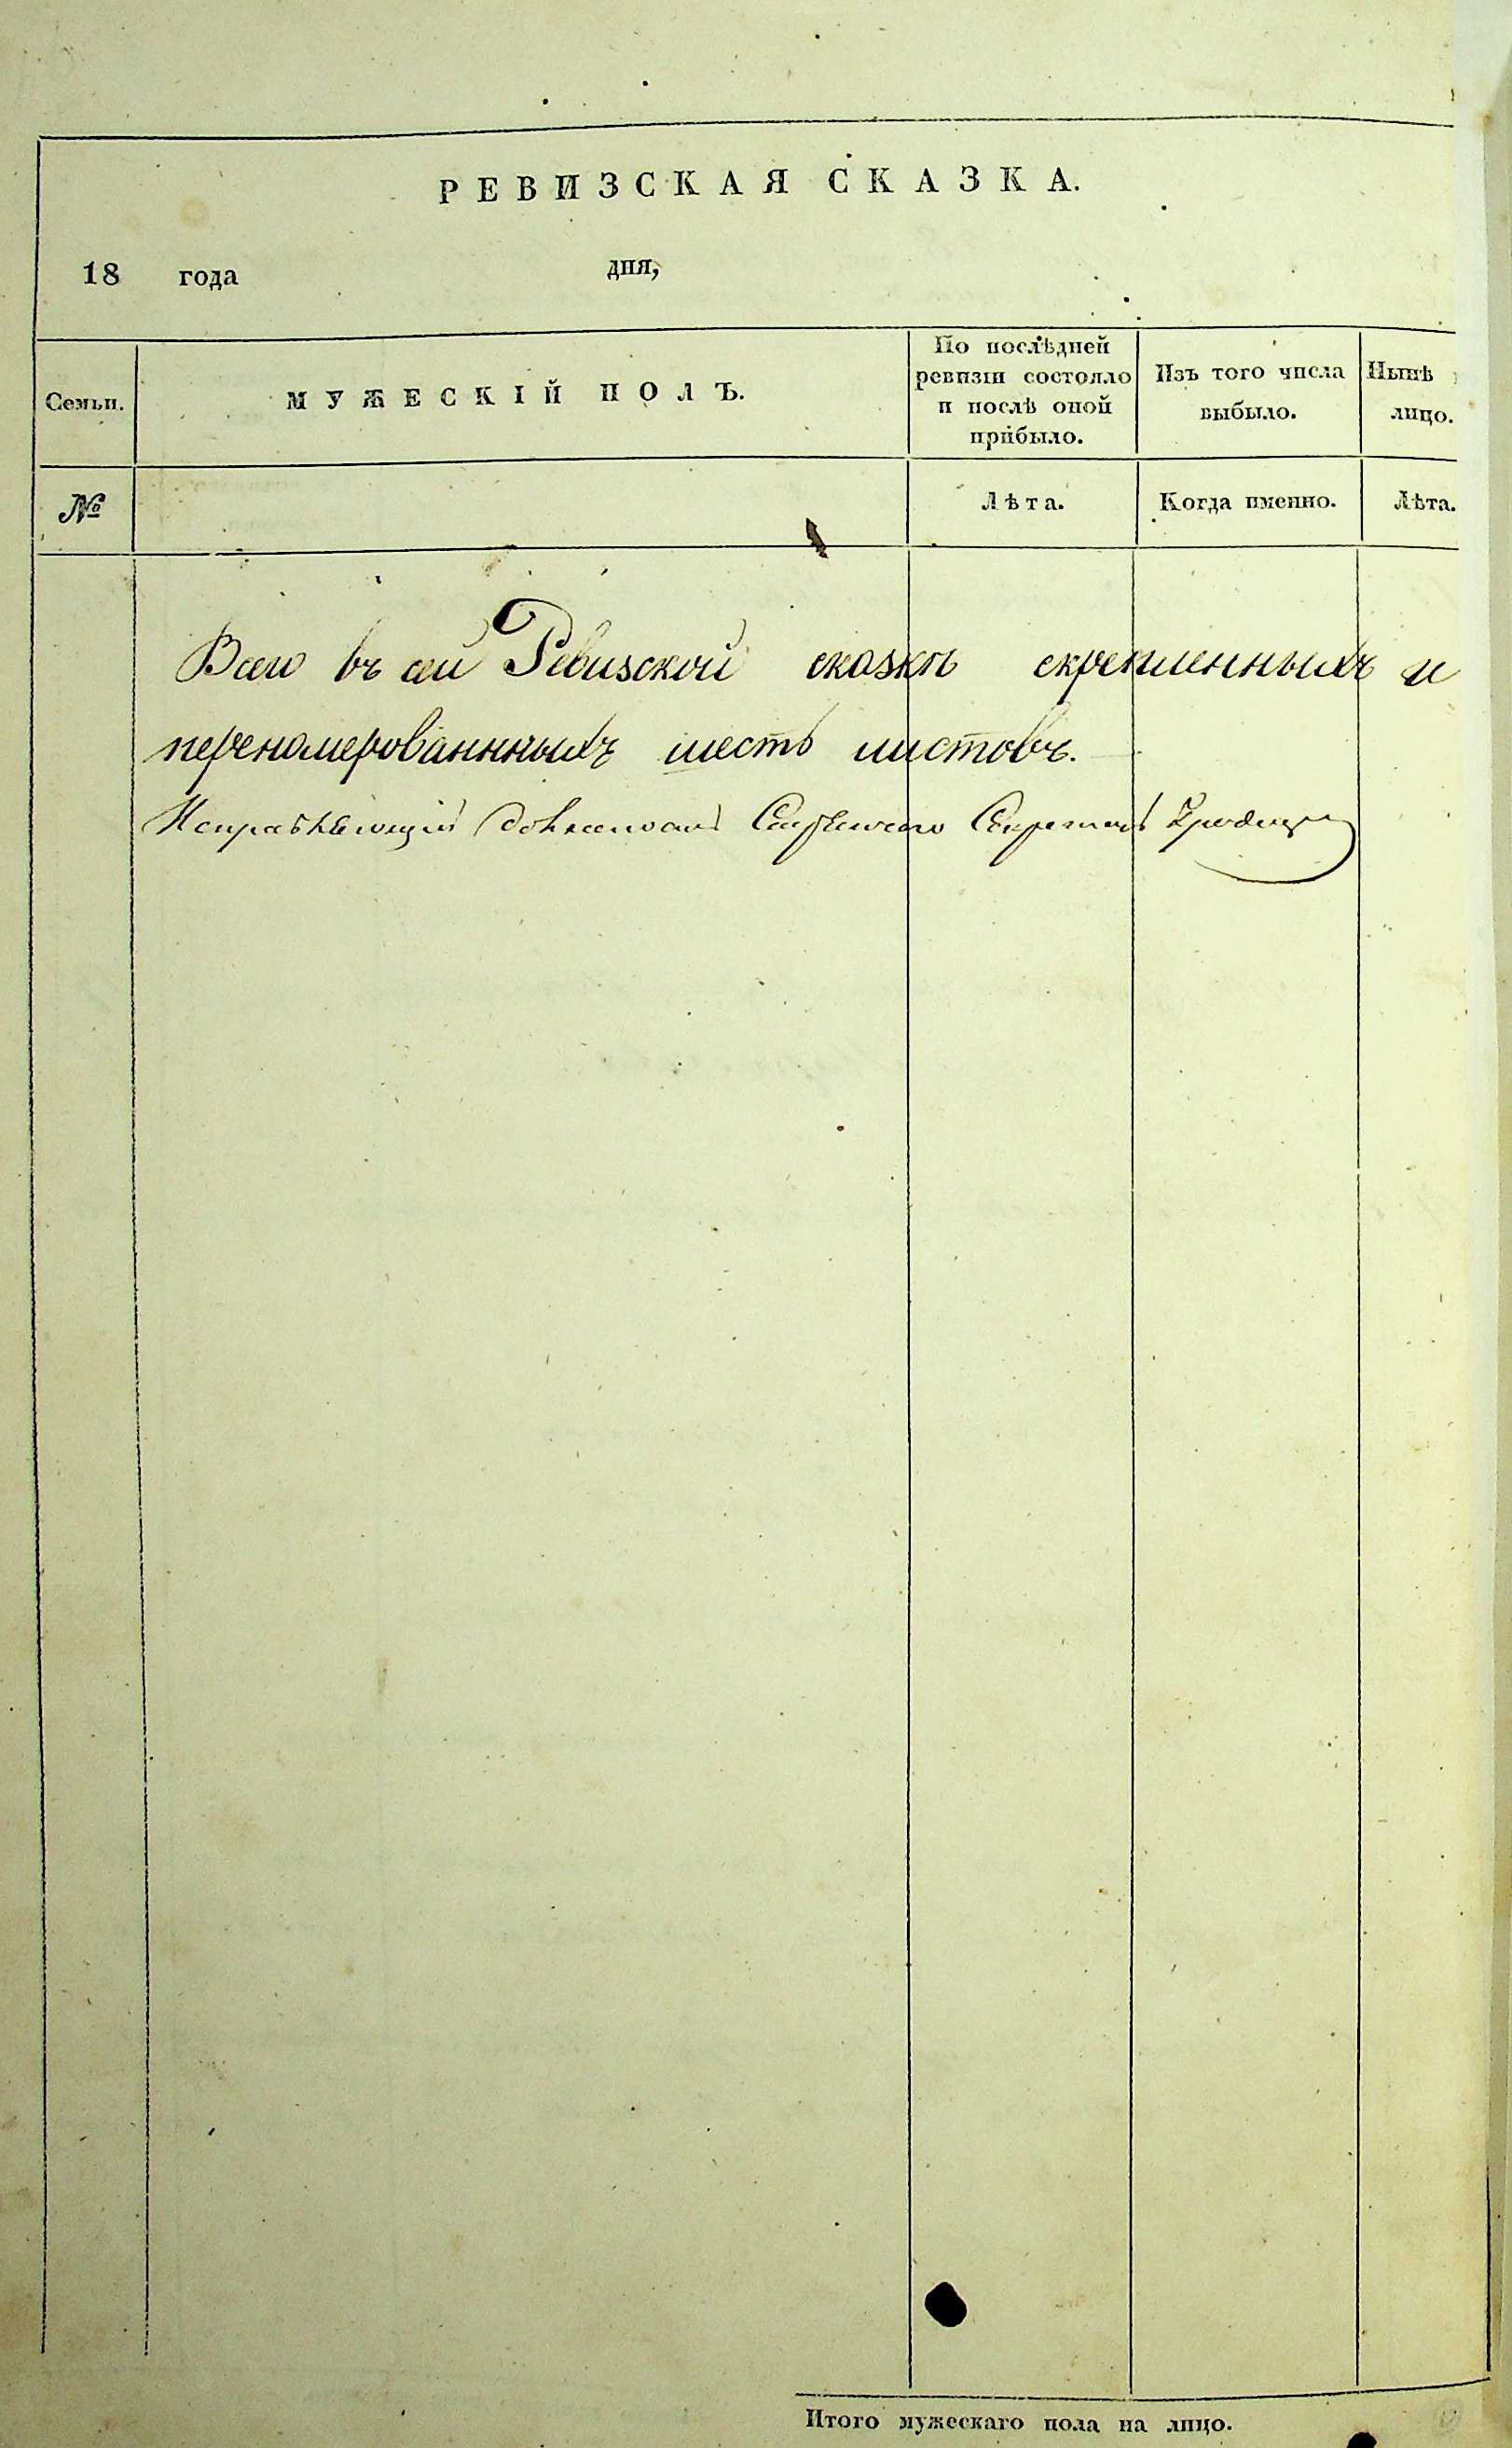 РЕВИЗСКАЯ СКАЗКА.
18 года дня,
Семьи.
МУЖЕСКІЙ ПОЛЪ.
По послѣдней
ревизіи состояло
и послѣ оной
прибыло.
Изъ того числа
выбыло.
Нынѣ
лицо.
№
Лѣта.
Когда именно.
Лѣта.
Всего въ сей Ревизской сказкѣ скрепленныхъ и
переномерованнныхъ шесть листовъ.
Исправляющій Секретарь
Итого мужескаго пола на лицо.